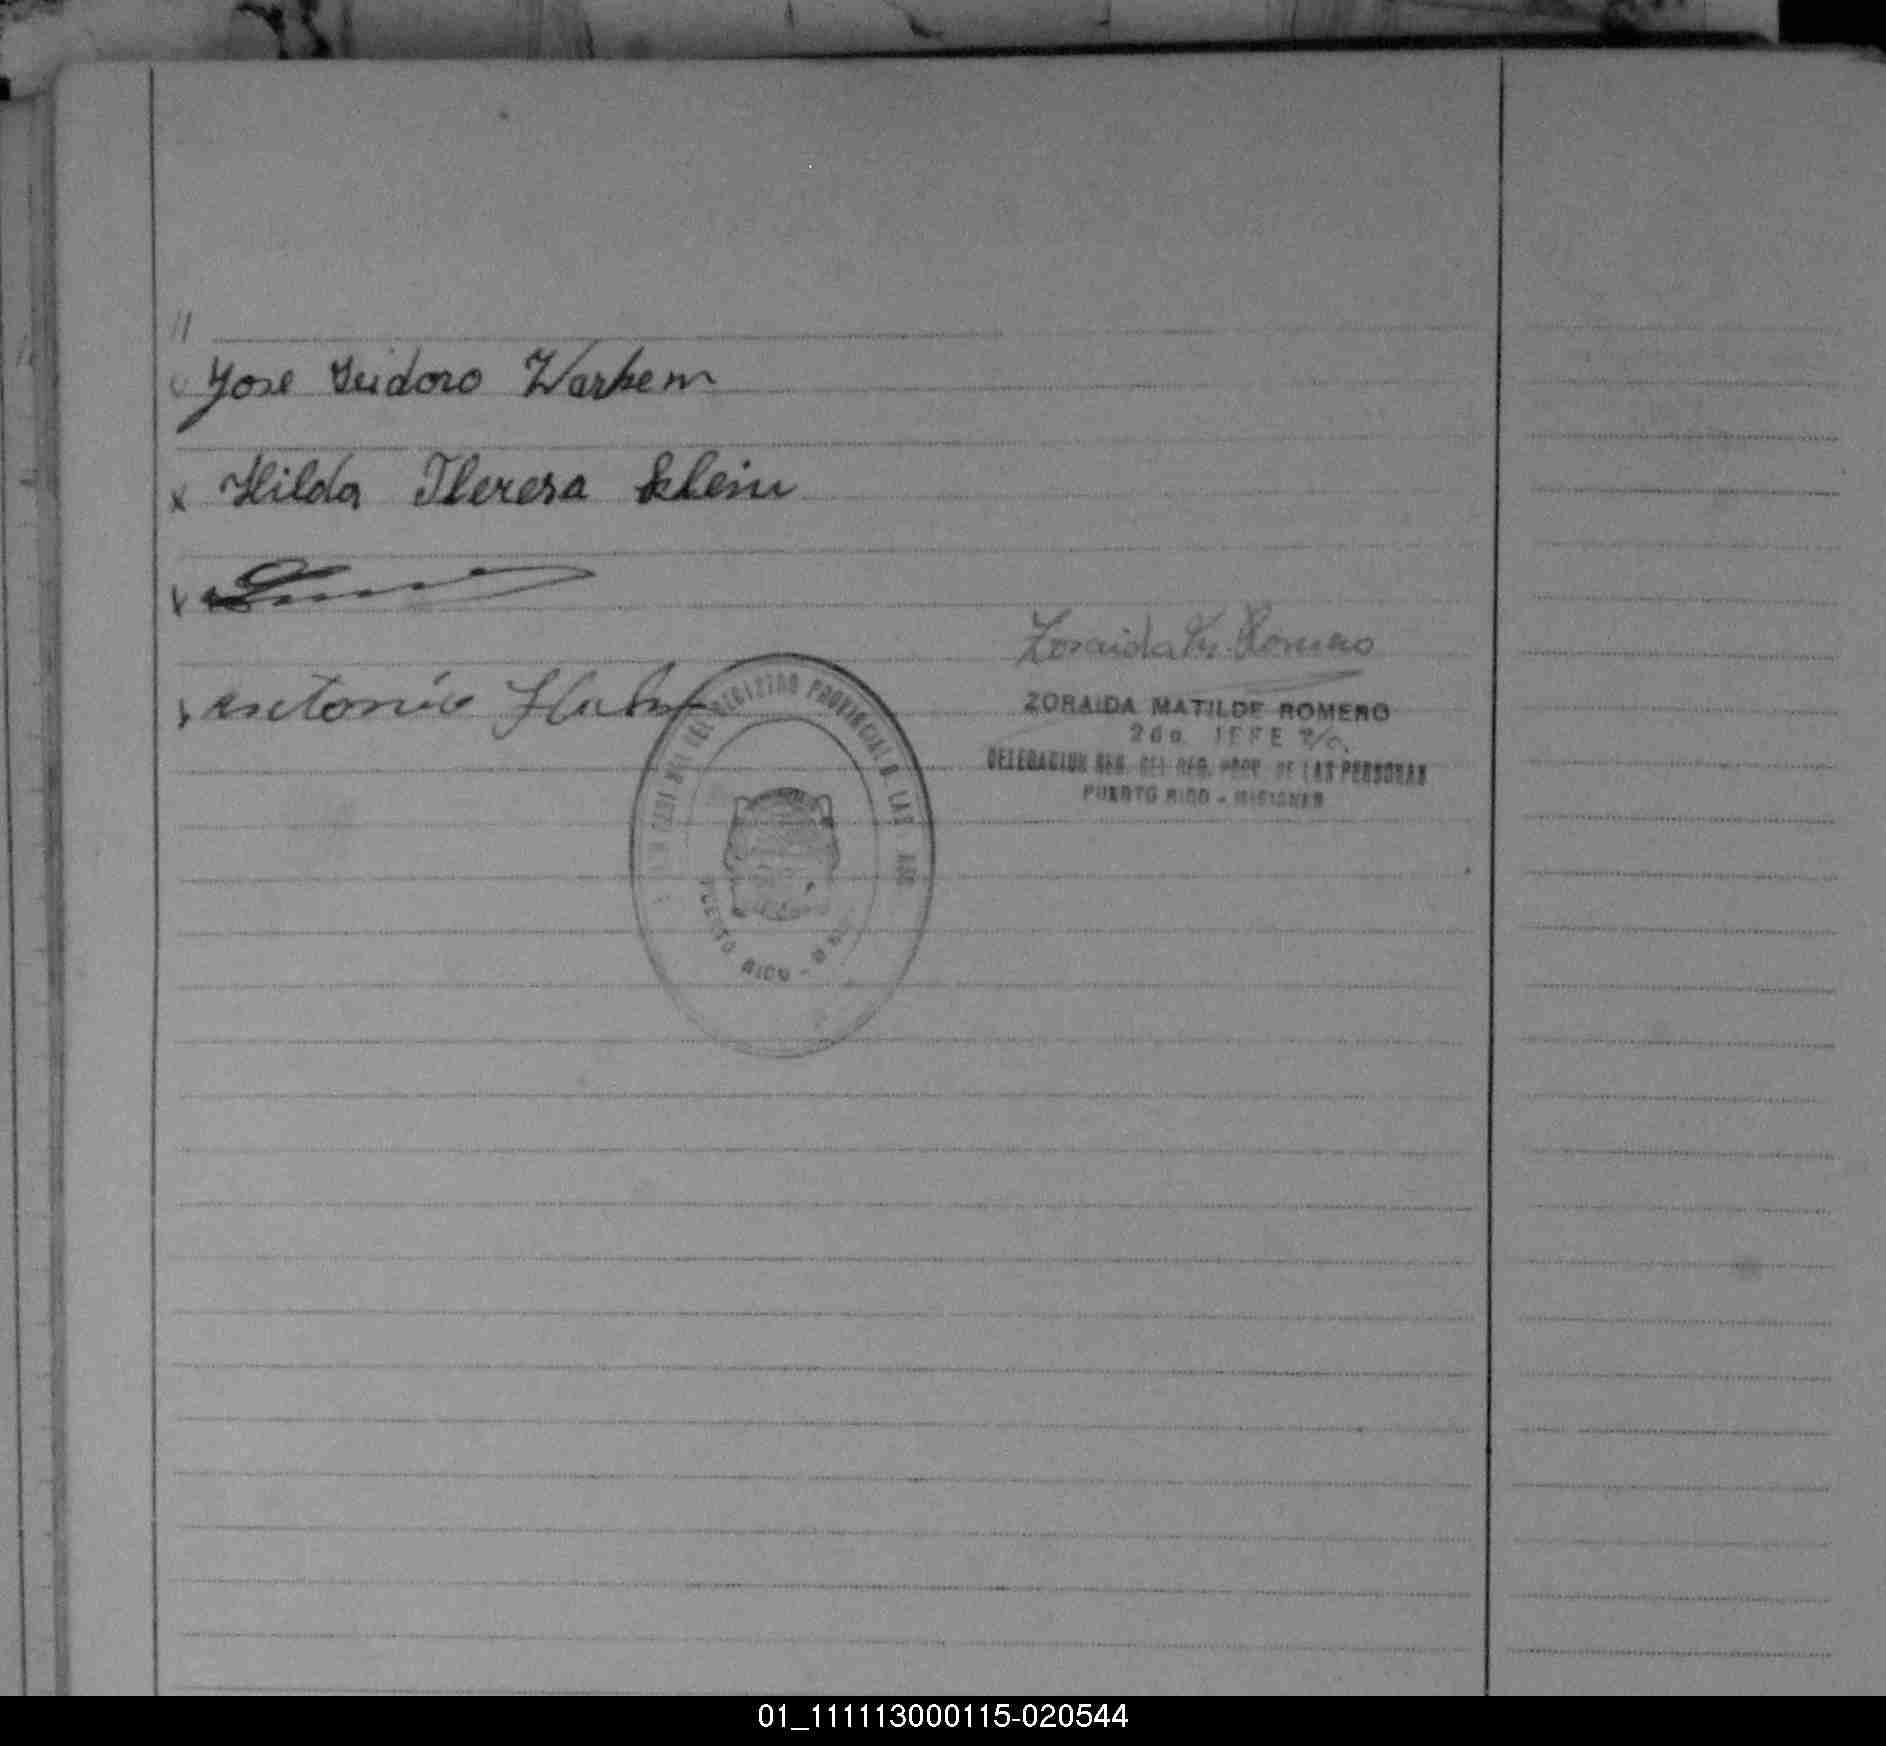 //
Jose Isidoro Warkem
x Hilda Theresa Klein
x
x Antonio
Zoraida M. Romero
ZORAIDA MATILDE ROMERO
2da. JEFE
DELEGACION REG. DEL REG. PROV. DE LAS PERSONAS
PUERTO RICO - MISIONES
DEL REGISTRO PROVINCIAL D. LAS
PUERTO RICO -
01_111113000115-020544